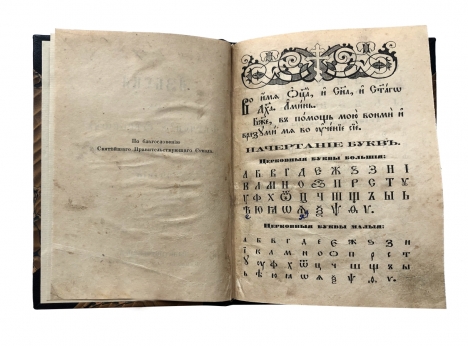 По благословенію
Святѣйшаго Правительствующаго Синода.
Во имѧ Оц҃а, и Сн҃а, и Ст҃агѡ
Дх҃а. Аминь.
Бж҃е, въ помощь мою вонми и
вразуми мѧ во оученіе сіе.
НАЧЕРТАНІЕ БУКВЪ.
Церковныя буквы большія:
А Б В Г Д Е Ж Ѕ З И
І К Л М Н О П Р С Т У
Ф Х Ѿ Ц Ч Ш Щ Ъ Ы Ь
Ѣ Ю Ѧ Ѯ Ѱ Ѳ Ѵ.
Церковныя буквы малыя:
а б в г д е ж ѕ з и
і к л м н о п р с т
у ф х ѿ ц ч ш щ ъ ы
ь ѣ ю ѡ ѧ ѯ ѱ ѳ ѵ.